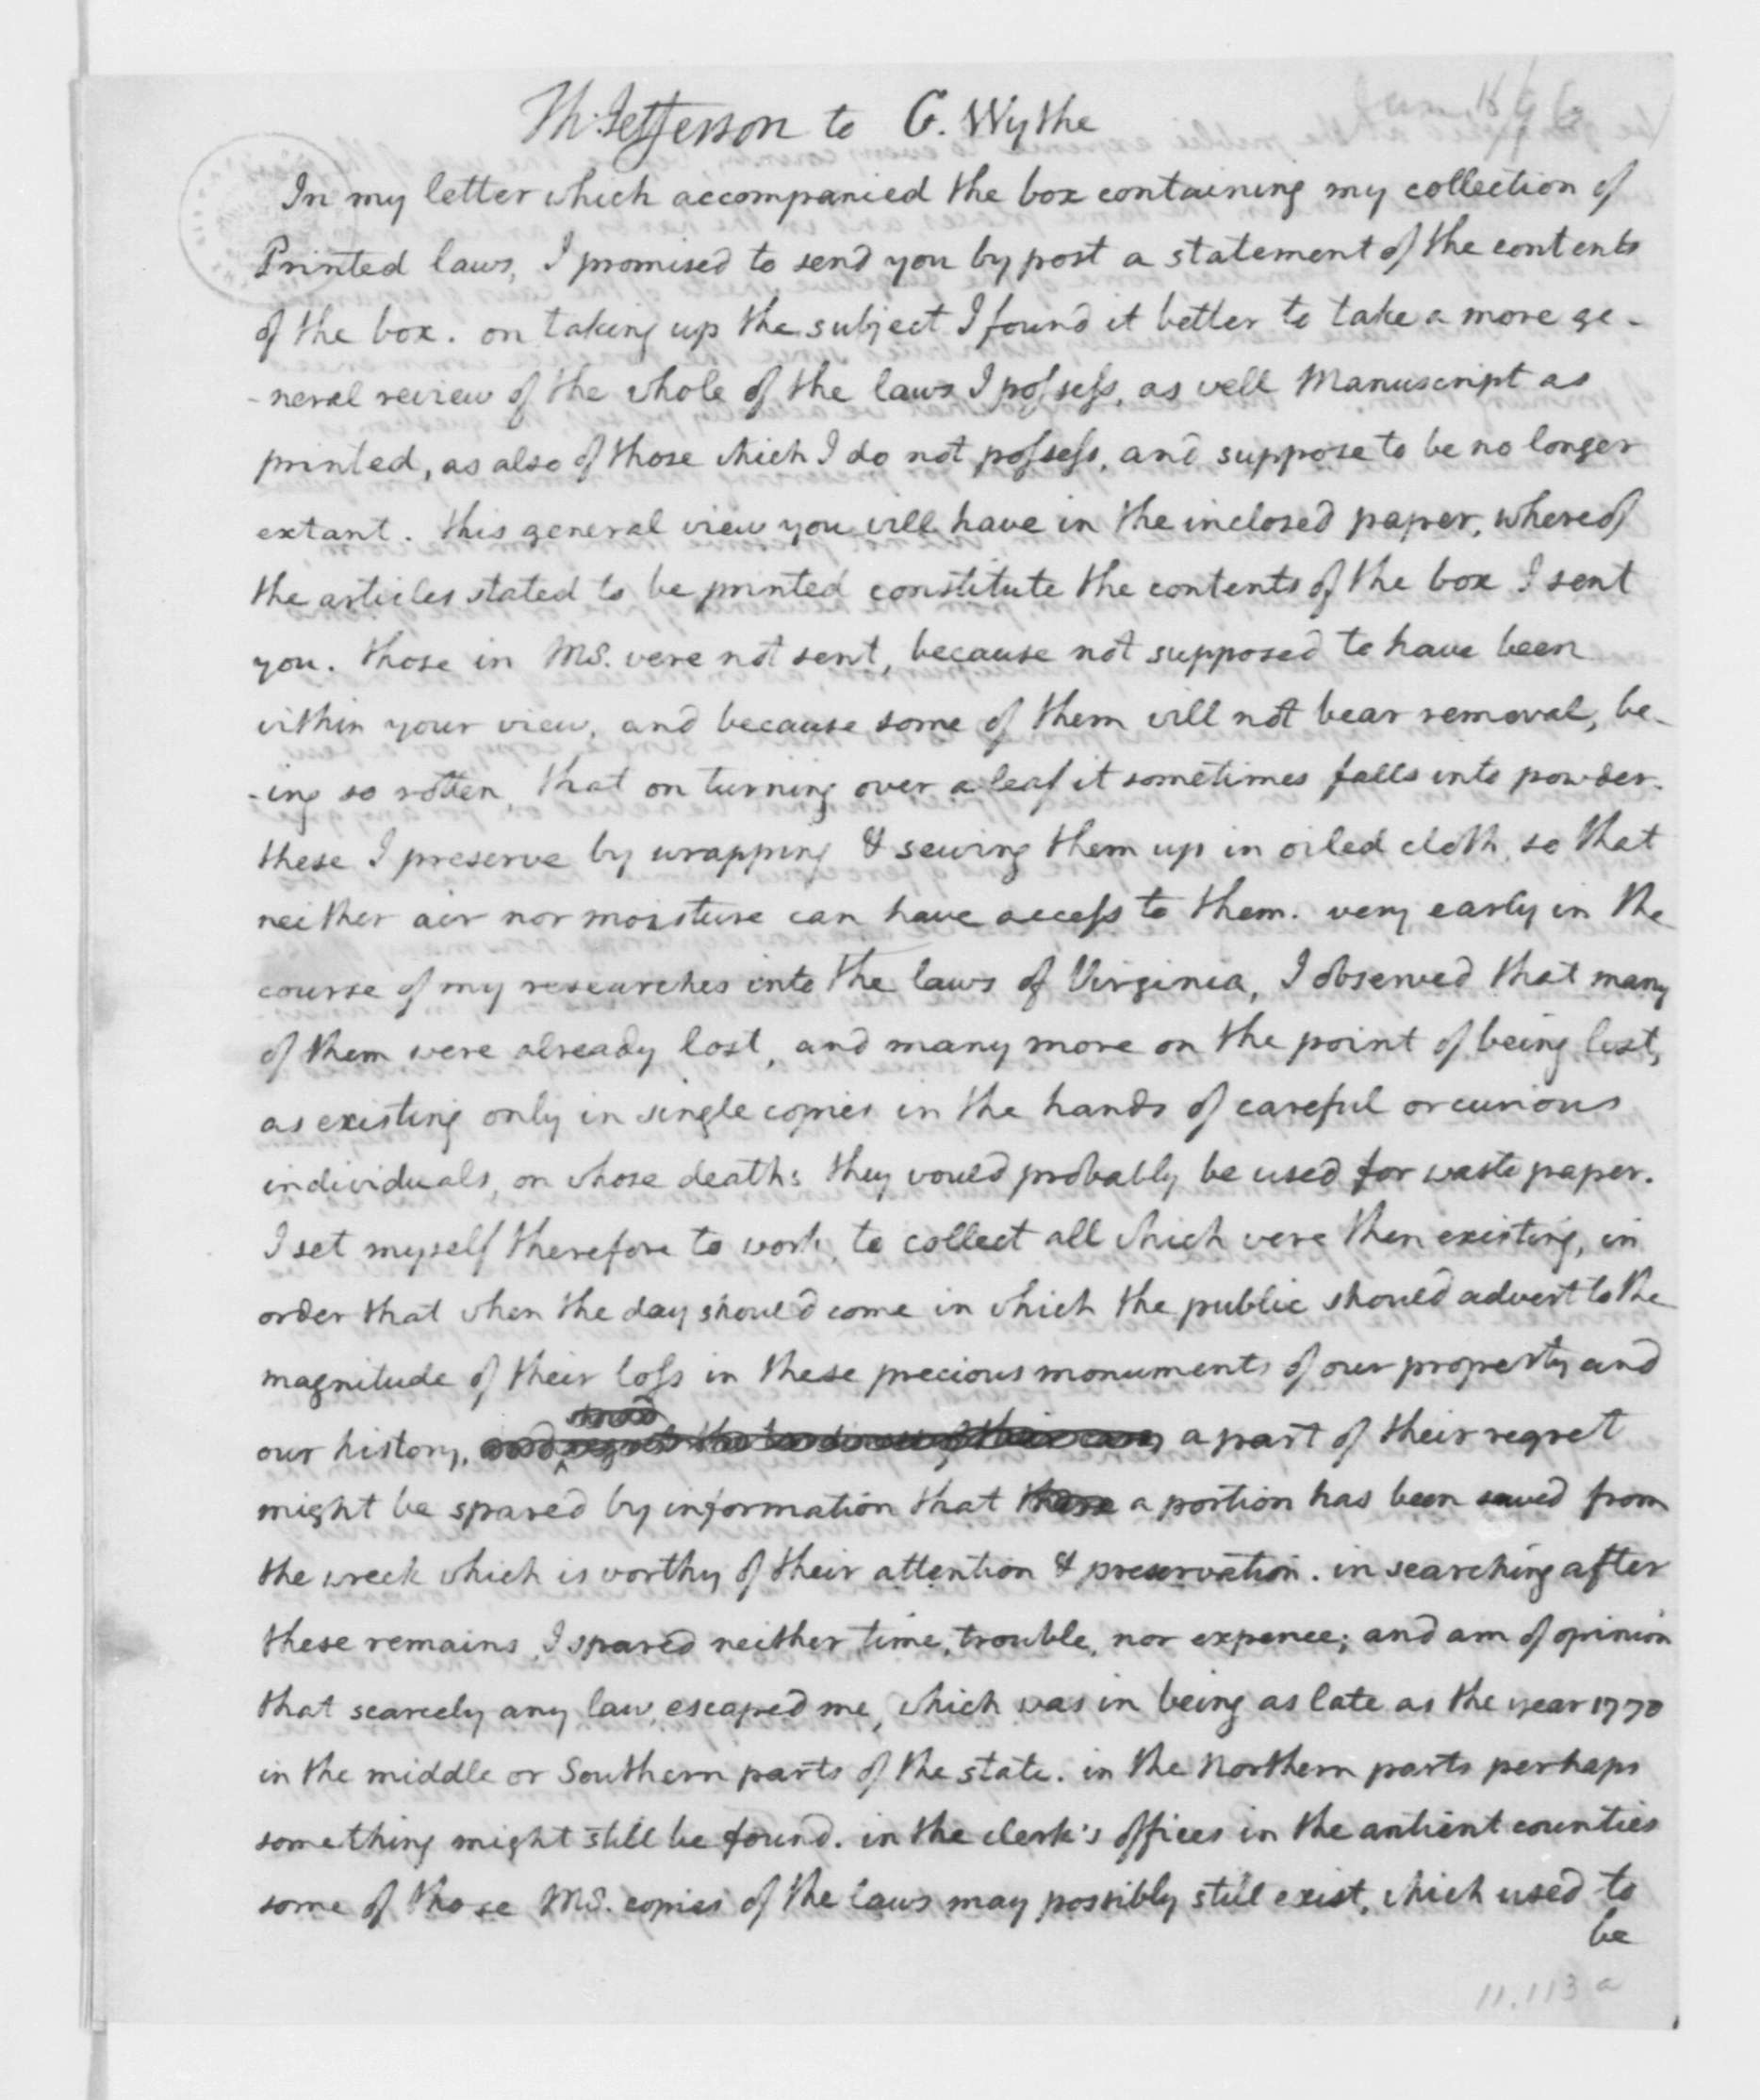 Th: Jefferson to G. Wythe
In my letter which accompanied the box containing my collection of
Printed laws, I promised to send you by post a statement of the contents
of the box. on taking up the subject I found it better to take a more ge-
-neral review of the whole of the laws I possess, as well Manuscript as
printed, as also of those which I do not possess, and suppose to be no longer
extant. this general view you will have in the inclosed paper, whereof
the articles stated to be printed constitute the contents of the box I sent
you. those in MS. were not sent, because not supposed to have been
within your view, and because some of them will not bear removal, be-
-ing so rotten, that on turning over a leaf it sometimes falls into powder.
these I preserve by wrapping & sewing them up in oiled cloth, so that
neither air nor moisture can have access to them. very early in the
course of my researches into the laws of Virginia, I observed that many
of them were already lost, and many more on the point of being lost,
as existing only in single copies in the hands of careful or curious
individuals, on whose deaths they would probably be used for waste paper.
I set myself therefore to work, to collect all which were then existing, in
order that when the day should come in which the public should advert to the
magnitude of their loss in these precious monuments of our property and
our history, a part of their regret
might be spared by information that a portion has been saved from
the wreck which is worthy of their attention & preservation. in searching after
these remains, I spared neither time, trouble, nor expence; and am of opinion
that scarcely any law escaped me, which was in being as late as the year 1770
in the middle or Southern parts of the state. in the Northern parts perhaps
something might still be found. in the clerk's offices in the antient counties
some of those MS. copies of the laws may possibly still exist, which used to
be
11.113 a